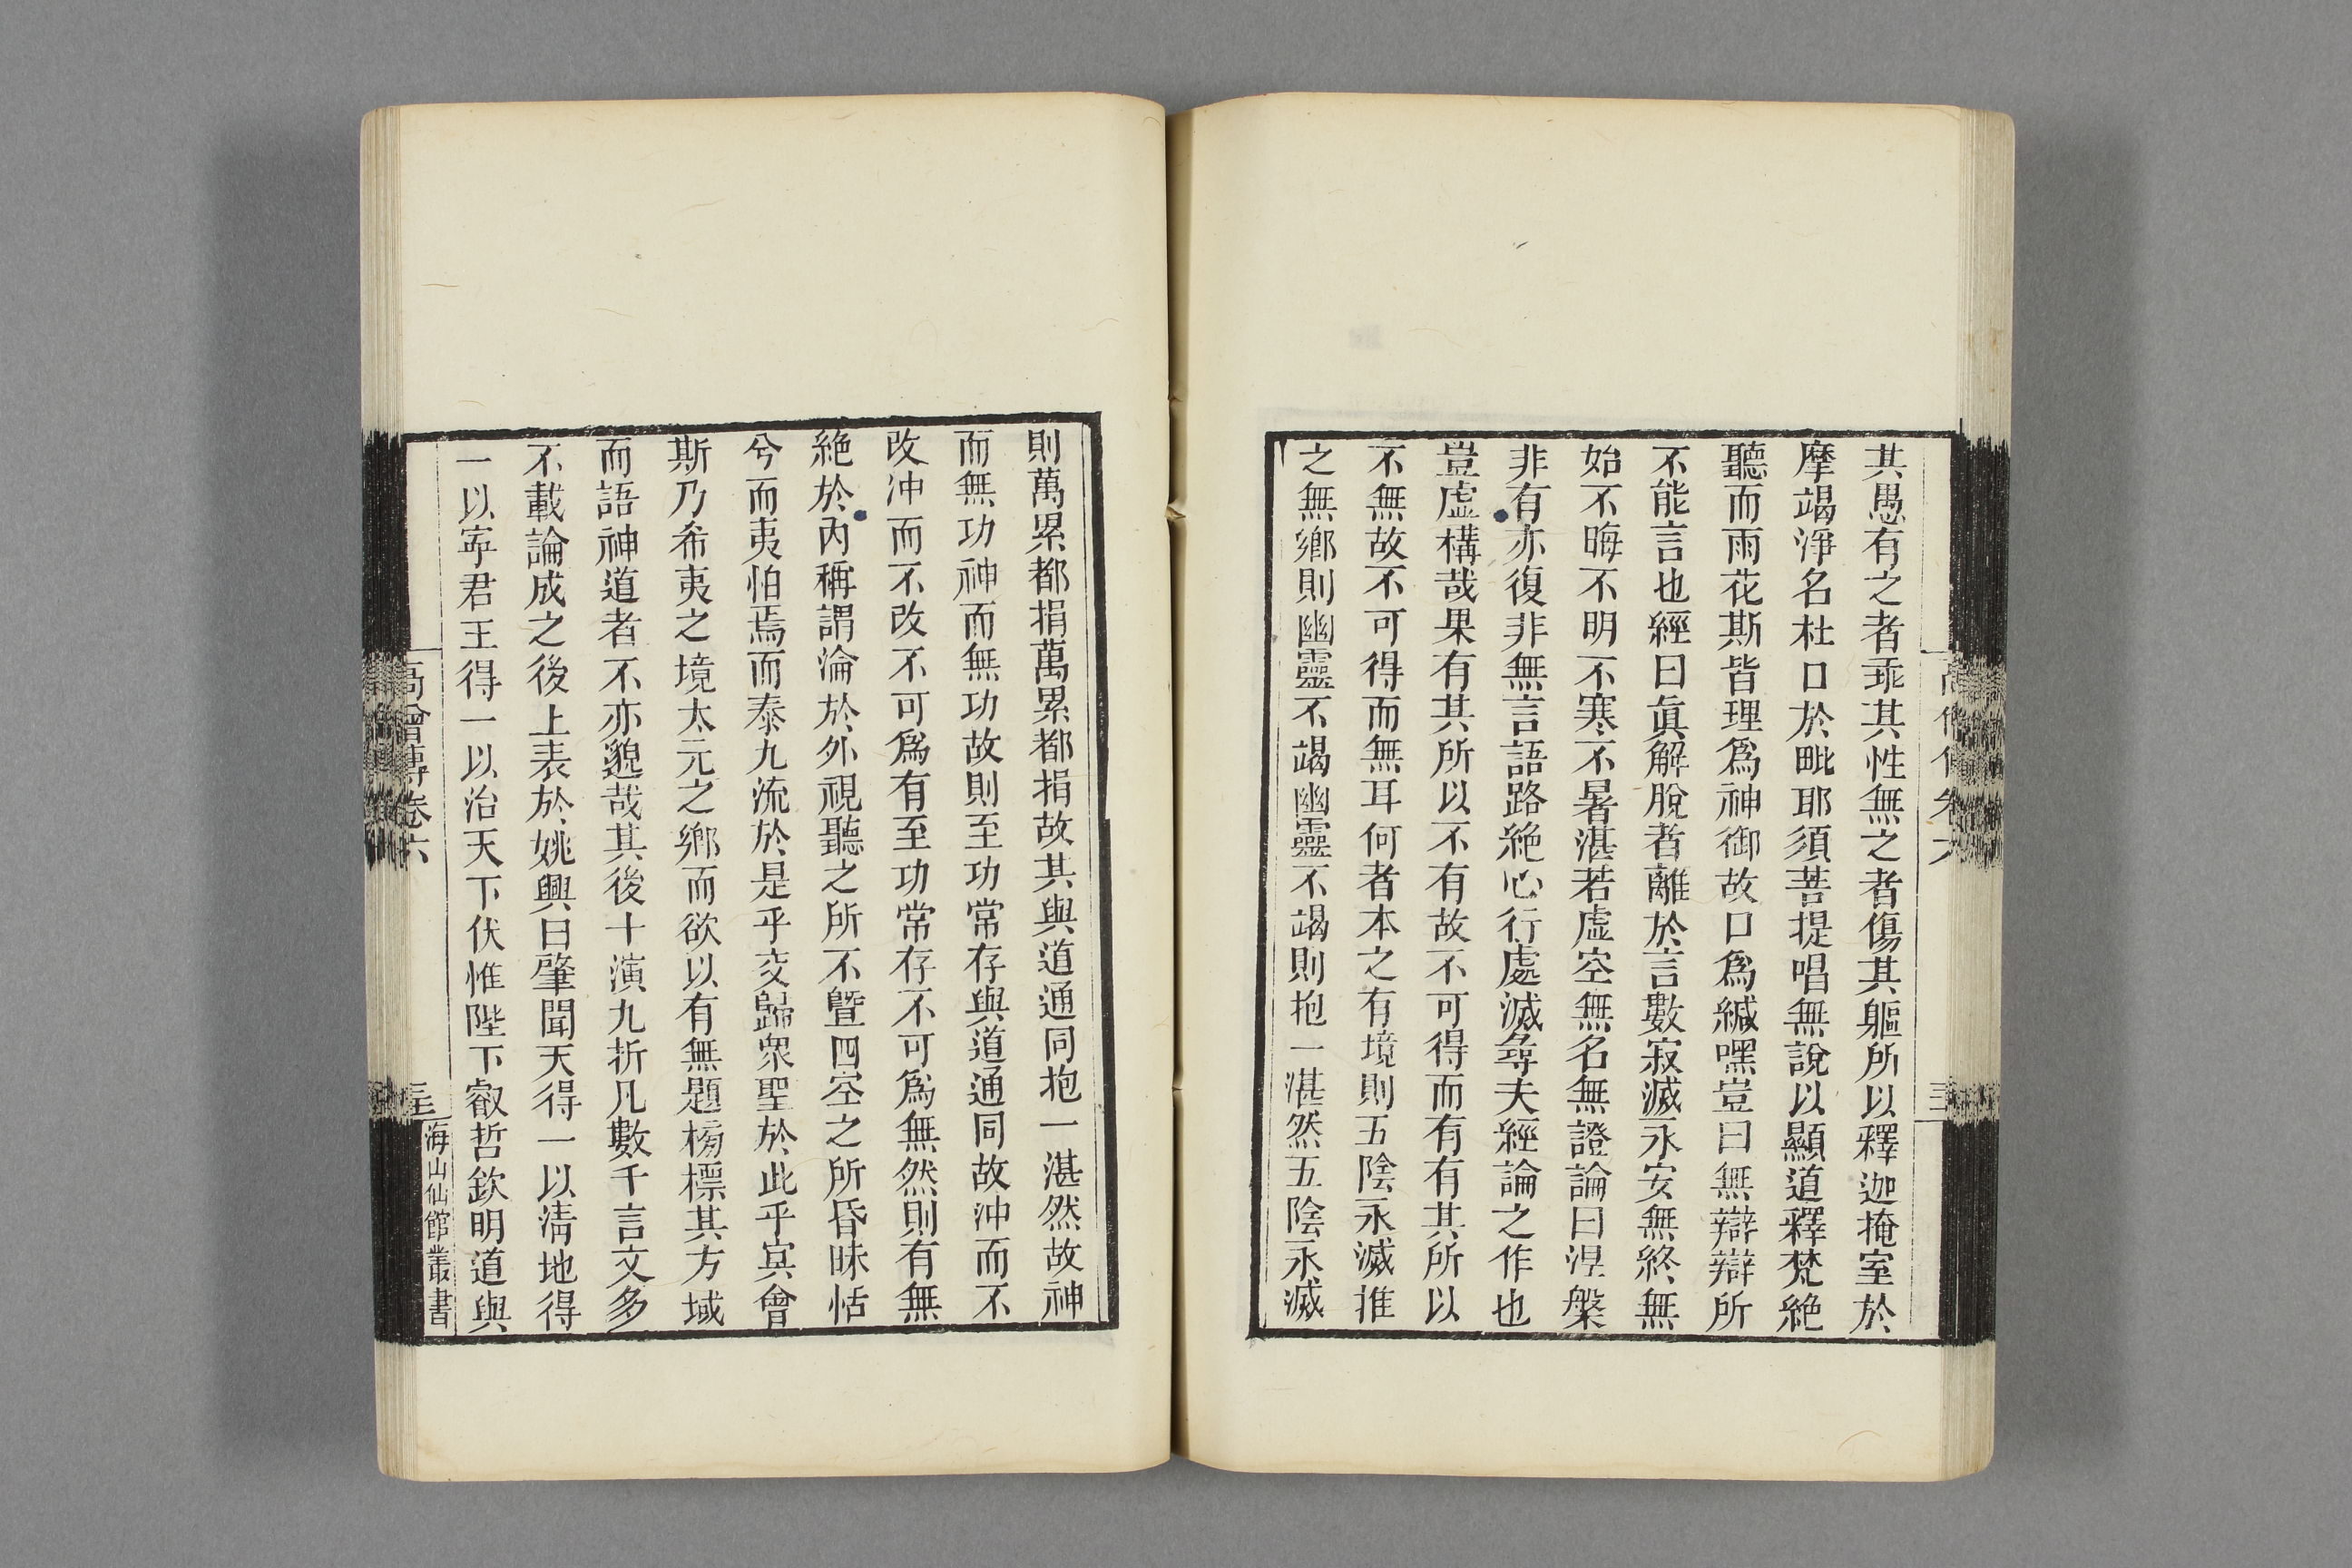 其愚有之者乖其性無之者傷其軀所以釋迦掩室於
摩竭淨名杜口於毗耶須菩提唱無說以顯道釋梵絶
聽而雨花斯皆理爲神御故口爲緘嘿豈曰無辯辯所
不能言也經曰眞解脫者離於言數寂滅永安無終無
始不晦不明不寒不暑湛若虛空無名無證論曰涅槃
非有亦復非無言語路絶心行處滅尋夫經論之作也
豈虛構哉果有其所以不有故不可得而有有其所以
不無故不可得而無耳何者本之有境則五陰永滅推
之無鄉則幽靈不竭幽靈不竭則抱一湛然五陰永滅
則萬累都捐萬累都捐故其與道通同抱一湛然故神
而無功神而無功故則至功常存與道通同故沖而不
改沖而不改不可爲有至功常存不可爲無然則有無
絶於內稱謂淪於外視聽之所不曁四空之所昏昧恬
兮而夷怕焉而泰九流於是乎交歸衆聖於此乎冥會
斯乃希夷之境太元之鄉而欲以有無題榜標其方域
而語神道者不亦邈哉其後十演九折凡數千言文多
不載論成之後上表於姚興曰肇聞天得一以淸地得
一以寧君王得一以治天下伏惟陛下叡哲欽明道與
高僧傳卷六
海山仙館叢書